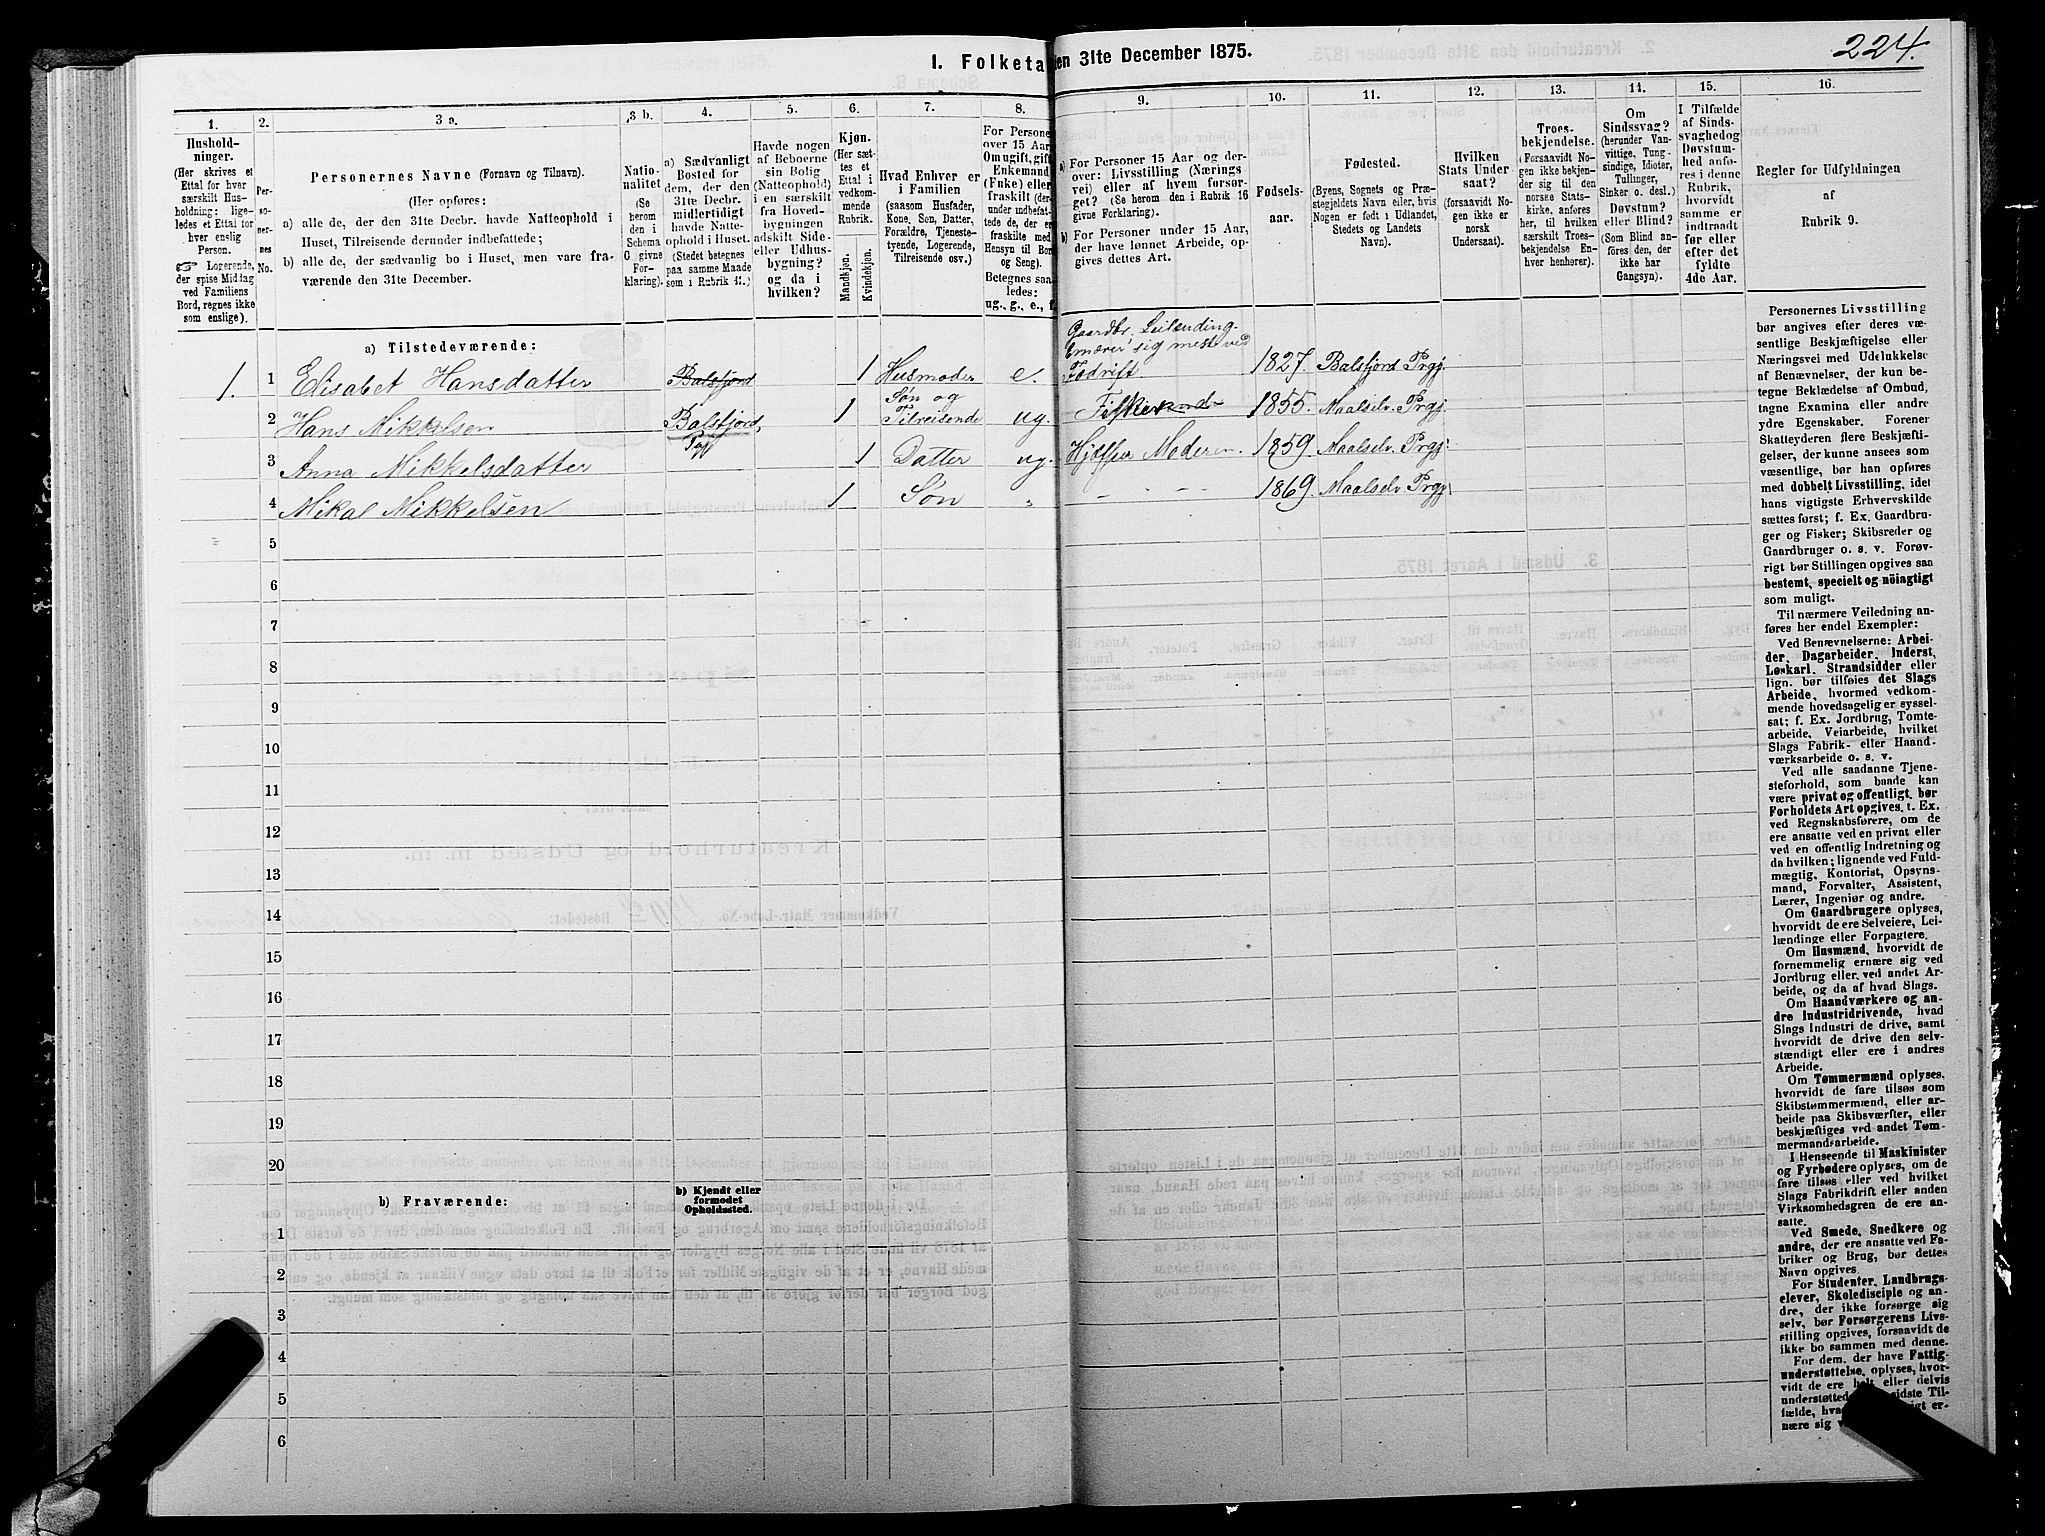 224.
I. Folketa
den 31te December 1875.
1.
Hushold-
ninger.
(Her skrives et
Ettal for hver
særskilt Hus-
holdning; lige-
ledes et Ettal for
hver enslig
Person.
☞ Logerende,
der spise Middag
ved Familiens
Bord, regnes ikke
som enslige).
2.
Per-
so-
ner-
nes
No.
3 a.
Personernes Navne (Fornavn og Tilnavn).
(Her opføres:
a) alle de, der den 31te Decbr. havde Natteophold i
Huset, Tilreisende derunder indbefattede;
b) alle de, der sædvanlig bo i Huset, men vare fra-
værende den 31te December.
3 b.
Natio-
nalitet
(Se
herom
den i
Schema
C givne
For-
klaring).
4.
a) Sædvanligt
Bosted for
dem, der den
31te Decbr.
midlertidigt
havde Natte-
ophold i Huset.
(Stedet betegnes
paa samme Maade
som i Rubrik 11.)
5.
Havde nogen
af Beboerne
sin Bolig
(Natteophold)
i en særskilt
fra Hoved-
bygningen
adskilt Side-
eller Udhus-
bygning?
og da i
hvilken?
6.
Kjøn.
(Her sæt-
tes et
Ettal i
vedkom-
mende
Rubrik.
Mandkjøn.
Kvindekjøn.
7.
Hvad Enhver er
i Familien
(saasom Husfader,
Kone, Søn, Datter,
Forældre, Tjeneste-
tyende, Logerende,
Tilreisende osv.)
8.
For Persone
over 15 Aar
Om ugift, gift
Enkemand
(Enke) eller
fraskilt (der-
under indbefat-
tede de, der er
fraskilte med
Hensyn til Bor
og Seng).
Betegnes saa-
ledes:
ug., g., e.,
9.
a) For Personer 15 Aar og der-
over: Livsstilling (Nærings
vei) eller af hvem forsør-
get? (Se herom den i Rubrik 16
givne Forklaring).
b) For Personer under 15 Aar,
der have lønnet Arbeide, op-
gives dettes Art.
10.
Fødsels-
aar.
11.
Fødested.
(Byens, Sognets og Præ-
stegjeldets Navn eller, hvis
Nogen er født i Udlandet,
Stedets og Landets
Navn).
12.
Hvilken
Stats Under-
saat?
(forsaavidt No-
gen ikke er
norsk
Undersaat).
13.
Troes-
bekjendelse.
(Forsaavidt No-
gen ikke bekjen-
der sig til den
norske Stats-
kirke, anføres
her, til hvilken
særskilt Troes-
bekjendelse En-
hver henhører).
14.
Om
Sindssvag?
(herunder Van-
vittige, Tung-
sindige, Idioter,
Tullinger,
Sinker o. desl.)
Døvstum?
eller Blind?
(Som Blind an-
føres den, der
ikke har
Gangsyn).
15.
I Tilfælde
af Sinds-
svaghed og
Døvstum-
hed anfø-
res i denne
Rubrik,
hvorvidt
samme er
indtraadt
før eller
efter det
fyldte
4de Aar.
16.
Regler for Udfyldningen
af
Rubrik 9.
a) Tilstedeværende:
Gaardbr. Leilending.
Ernærer sig mest ved
1. 1 Elisabet Hansdatter Balsfjord 1 Husmoder e. Fødrift 1827. Balsfjord Prgj.
Søn og
2 Hans Mikkelsen Balsfjord 1 Tilreisende ug. Fisker 1855. Maalselv. Prgj.
Pgj
3 Anna Mikkelsdatter 1 Datter ug. Hjælper Moderen. 1859. Maalselv. Prgj.
4 Mikal Mikkelsen 1 Søn „ – – – 1869. Maalselv Prgj.
5
6
7
8
9
10
11
12
13
14
15
16
17
18
19
20
b) Fraværende:
b) Kjendt eller
formodet
Opholdssted.
1
2
3
4
5
6
Personernes Livsstilling
bør angives efter deres væ-
sentlige Beskjæftigelse eller
Næringsvei med Udelukkelse
af Benævnelser, der kun be-
tegne Beklædelse af Ombud,
tagne Examina eller andre
ydre Egenskaber. Forener
Skatteyderen flere Beskjæfti-
gelser, der kunne ansees som
væsentlige, bør han opføres
med dobbelt Livsstilling, idet
hans vigtigste Erhvervskilde
sættes først; f. Ex. Gaardbru-
ger og Fisker; Skibsreder og
Gaardbruger o. s. v. Forøv-
rigt bør Stillingen opgives saa
bestemt, specielt og nöiagtigt
som muligt.
Til nærmere Veiledning an-
føres her endel Exempler:
Ved Benævnelserne: Arbei-
der, Dagarbeider, Inderst,
Løskarl, Strandsidder eller
lign. bør tilføies det Slags
Arbeide, hvormed vedkom-
mende hovedsagelig er syssel-
sat; f. Ex. Jordbrug, Tomte-
arbeide, Veiarbeide, hvilket
Slags Fabrik- eller Haand-
værksarbeide o. s. v.
Ved alle saadanne Tjene-
steforhold, som baade kan
være privat og offentligt, bør
Forholdets Art opgives, t. Ex.
ved Regnskabsførere, om de
ere ansatte ved en privat eller
ved en offentlig Indretning og
da hvilken; lignende ved Fuld-
mægtig, Kontorist, Opsyns-
mand, Forvalter, Assistent,
Lærer, Ingeniør og andre.
Om Gaardbrugere oplyses,
hvorvidt de ere Selveiere, Lei-
lændinge eller Forpagtere.
Om Husmænd, hvorvidt de
fornemmelig ernære sig ved
Jordbrug eller ved andet Ar-
beide, og da af hvad Slags.
Om Haandværkere og an-
dre Industridrivende, hvad
Slags Industri de drive, samt
hvorvidt de drive den selv-
stændigt eller ere i andres
Arbeide.
Om Tømmermænd oplyses,
hvorvidt de fare tilsøs som
Skibstømmermænd, eller ar-
beide paa Skibsværfter, eller
beskjæftiges ved andet Tøm-
mermandsarbeide.
I Henseende til Maskinister
og Fyrbødere oplyses, om de
fare tilsøs eller ved hvilket
Slags Fabrikdrift eller anden
Virksomhedsgren de ere an-
satte.
Ved Smede, Snedkere og
andre, der ere ansatte ved Fa-
briker og Brug, bør dettes
Navn opgives.
For Studenter, Landbrugs-
elever, Skoledisciple og an-
dre, der ikke forsørge sig
selv, bør Forsørgerens Livs-
stilling opgives, forsaavidt de
ikke bo sammen med denne.
For dem, der have Fattig-
understøttelse, oplyses, hvor-
vidt de ere helt eller delvis
understøttede sidste Til-
fælde, er-
nære sig